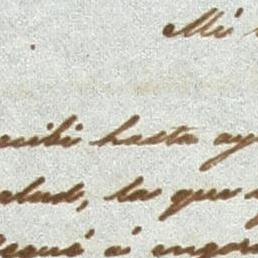 Mi
cibi hasta ay
alud, la que
legué á engor